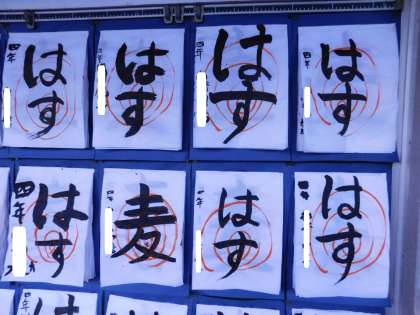 はす
四年
はす
四年
はす
四年
はす
四年
はす
四年
麦
四年
はす
四年
はす
四年
は